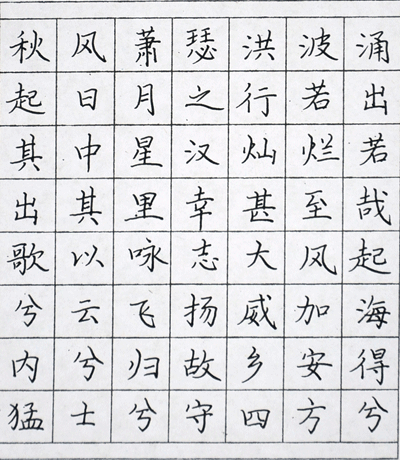 秋风萧瑟洪波涌
起日月之行若出
其中星汉灿烂若
出其里幸甚至哉
歌以咏志大风起
兮云飞扬威加海
内兮归故乡安得
猛士兮守四方兮